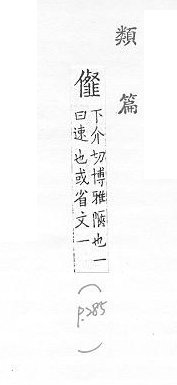 類篇
下介切博雅也一
曰速也或省文一
(p.285)